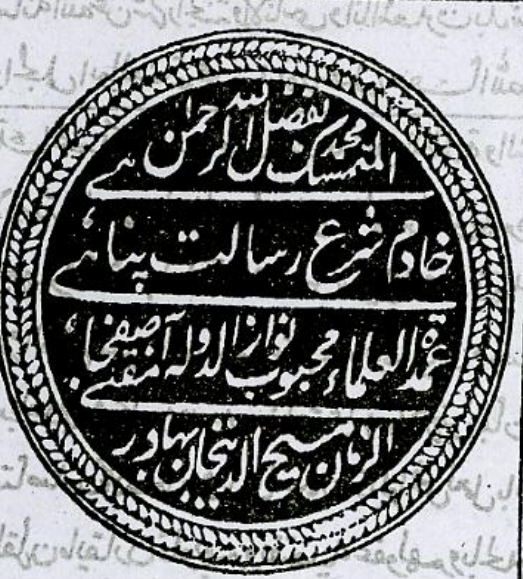 المتمسک بفضل الله الرحمن محمد
خادم شرع رسالت پناہے
عمدة العلماء محبوب نواز الدولہ مفتی آصفجاہے
الزمان مسیح الدینخان بہادر